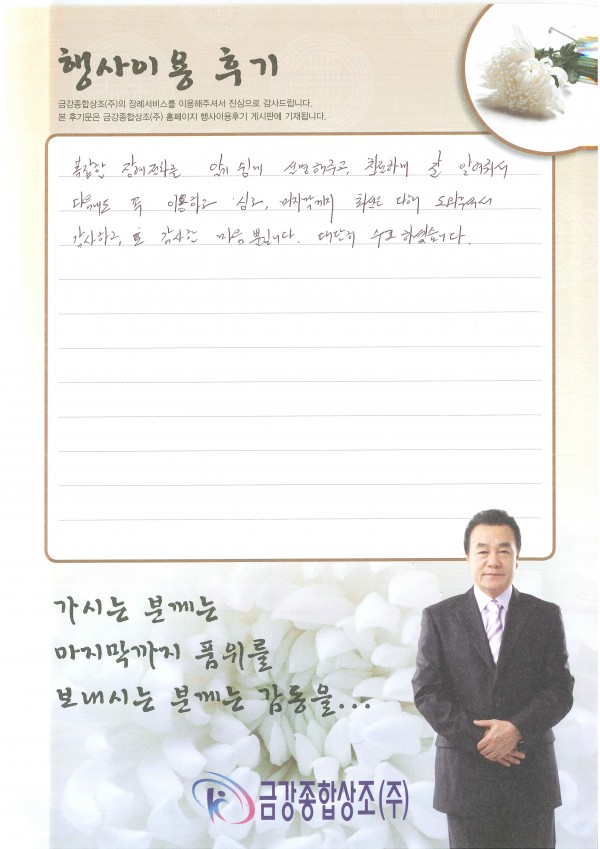 행사이용 후기
금강종합상조(주)의 장례서비스를 이용해주셔서 진심으로 감사드립니다.
본 후기문은 금강종합상조(주) 홈페이지 행사이용후기 게시판에 기재됩니다.
복잡한 장례절차를 알기 쉽게 설명해주고, 친절하게 잘
다음에도 꼭 이용하고 싶고, 마지막까지 최선을 다해 도와주셔서
감사하고, 또 감사한 마음 뿐입니다. 대단히 수고 하셨습니다.
가시는 분께는
마지막까지 품위를
보내시는 분께는 감동을...
금강종합상조(주)